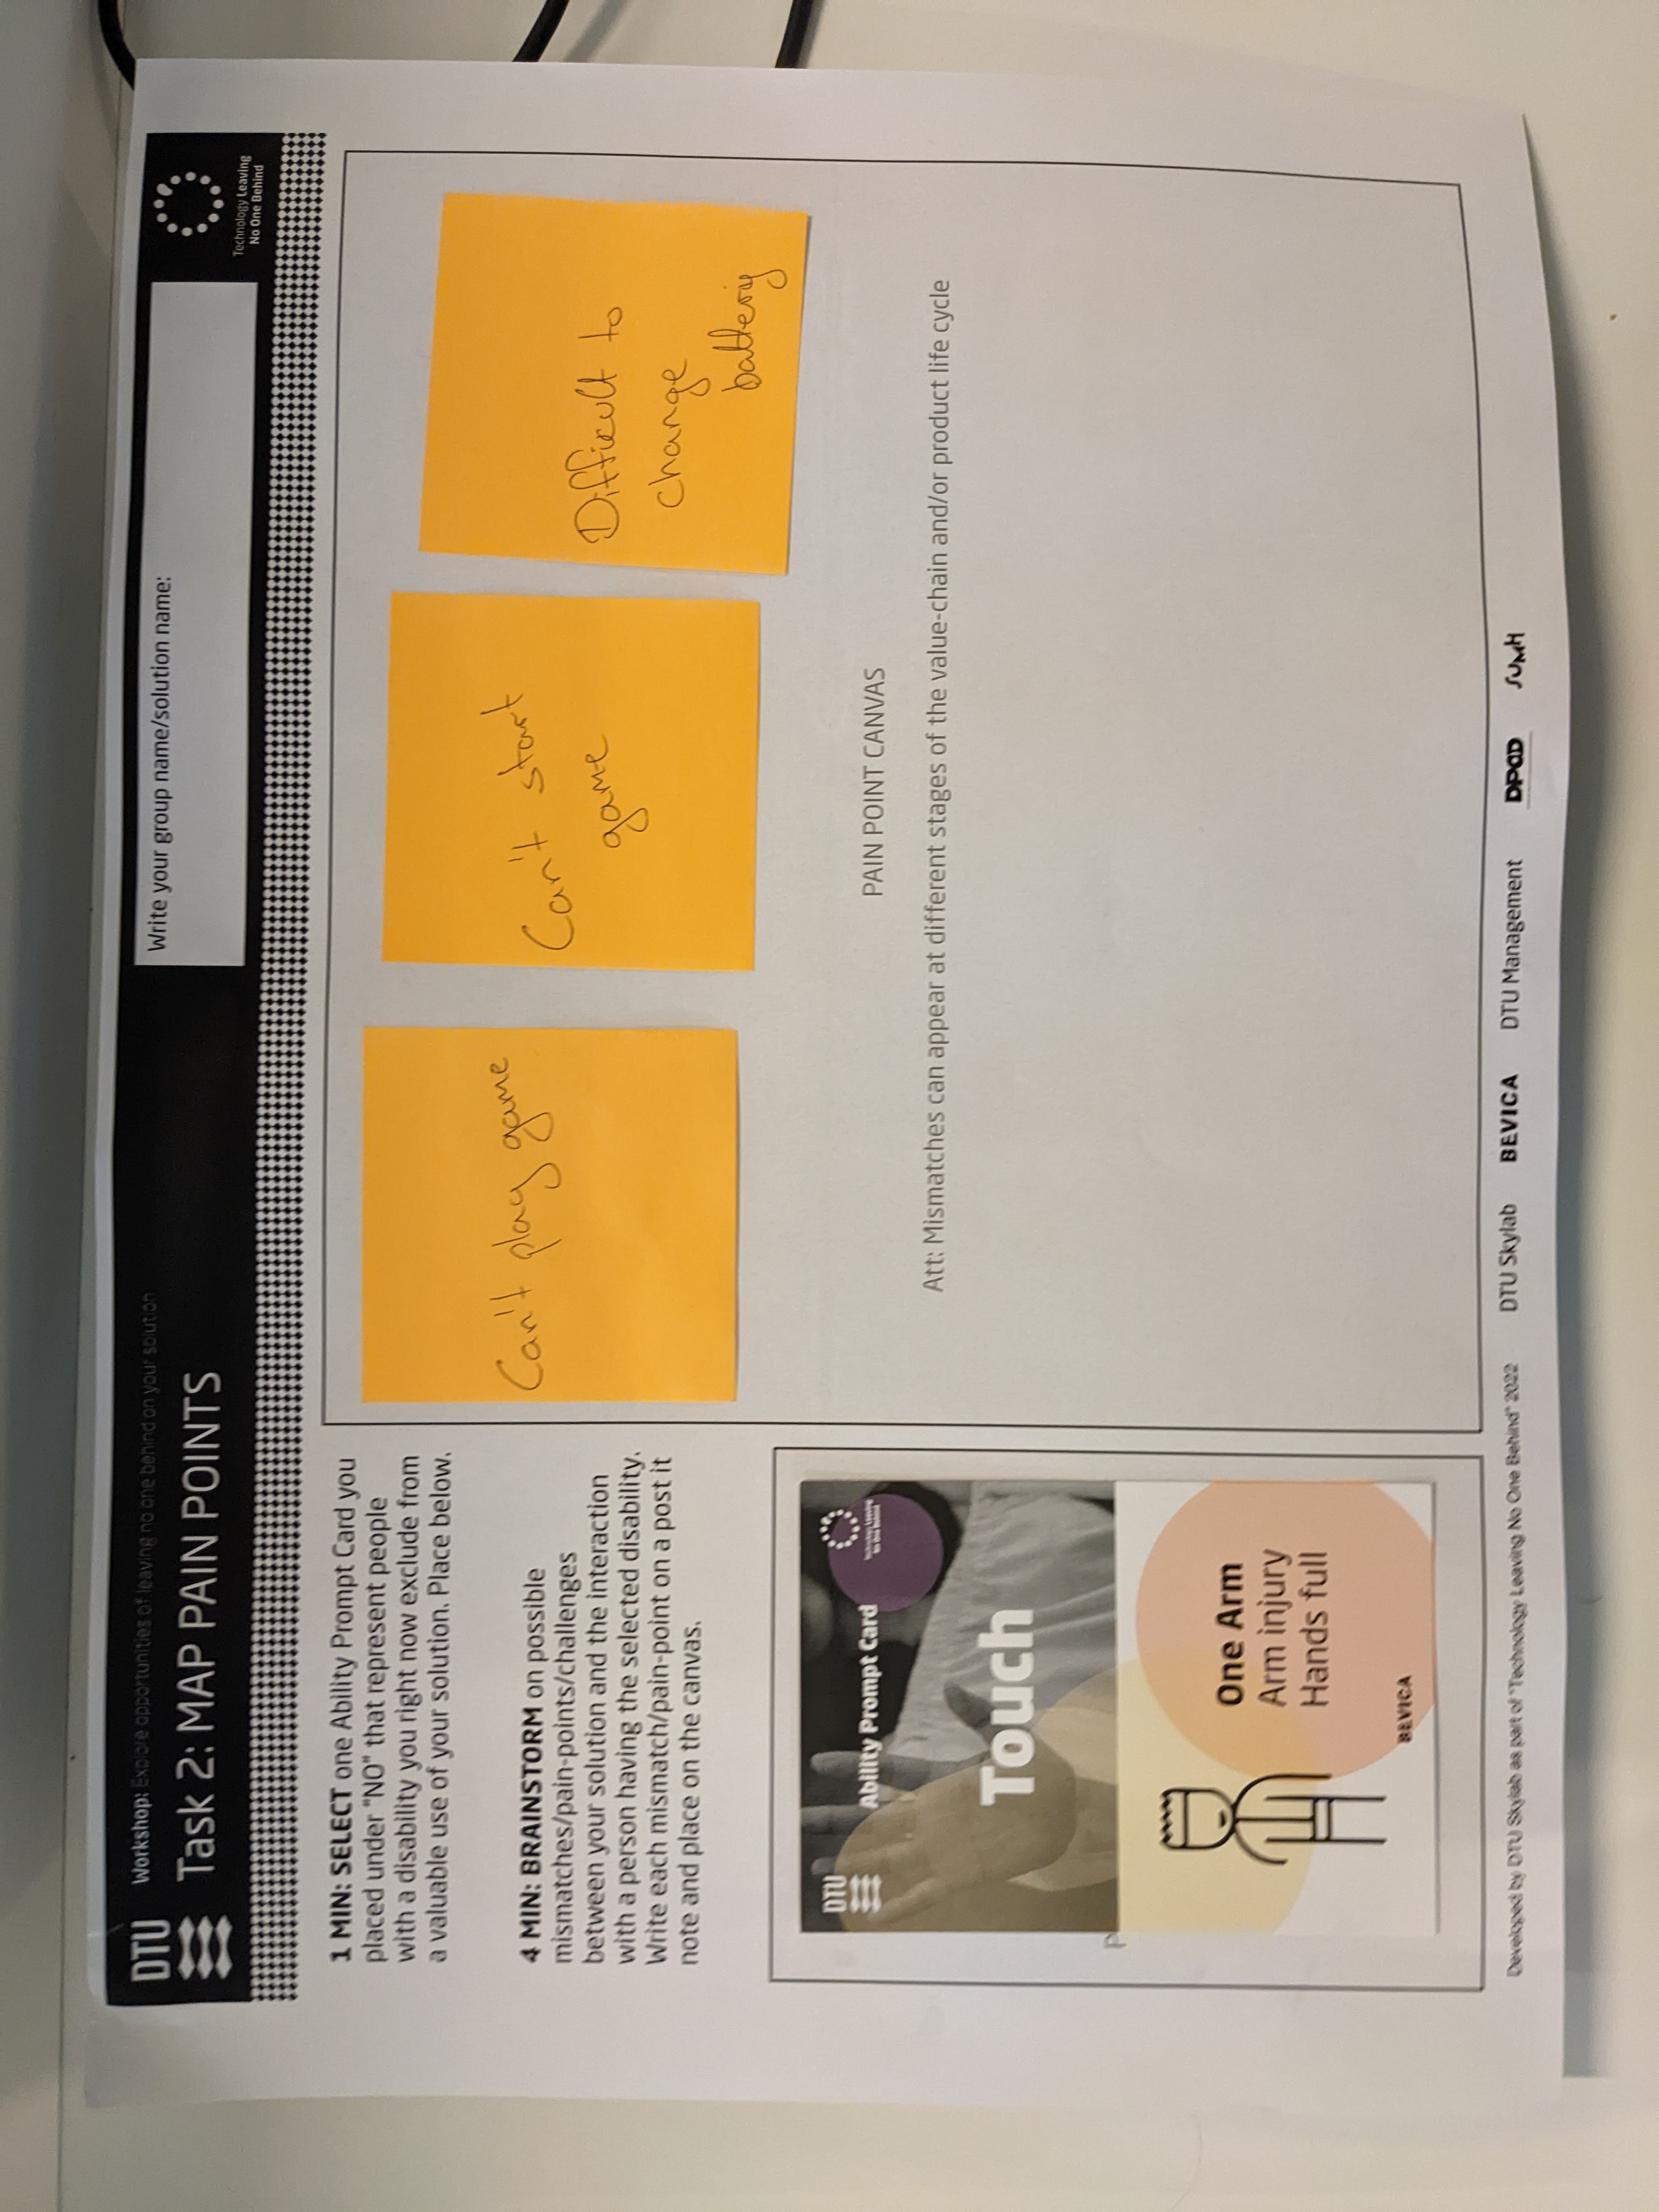 DTU
Workshop: Explore opportunities of leaving no one behind on your solution
Task 2: MAP PAIN POINTS
Write your group name/solution name:
Technology Leaving
No One Behind
1 MIN: SELECT one Ability Prompt Card you
placed under "NO" that represent people
with a disability you right now exclude from
a valuable use of your solution. Place below.
4 MIN: BRAINSTORM on possible
mismatches/pain-points/challenges
between your solution and the interaction
with a person having the selected disability.
Write each mismatch/pain-point on a post it
note and place on the canvas.
DTU
Ability Prompt Card
Technology Leaving
No One Behind
Touch
P
One Arm
Arm injury
Hands full
BEVICA
Can't play game
Can't start
game
Difficult to
change
battery
PAIN POINT CANVAS
Att: Mismatches can appear at different stages of the value-chain and/or product life cycle
Developed by DTU Skylab as part of "Technology Leaving No One Behind" 2022
DTU Skylab
BEVICA
DTU Management
DPOD
SUMH